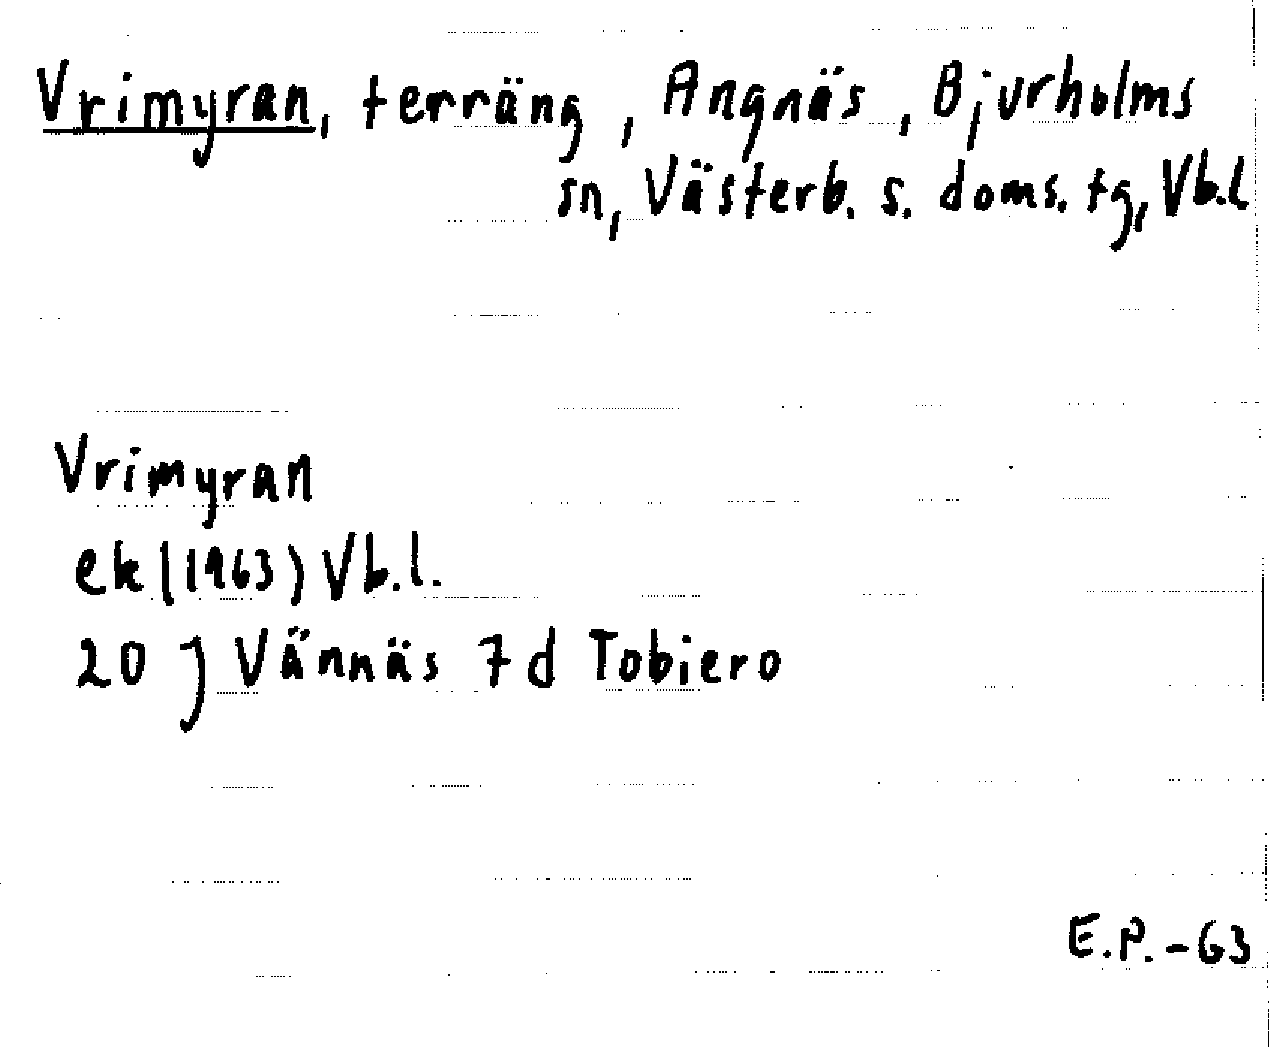 Vrimyran, terräng, Angnäs, Bjurholms
sn, Västerb. s. doms. tg, Vb.l
Vrimyran
ek (1963) Vb.l.
20 J Vännäs 7d Tobiero
E.P.-63